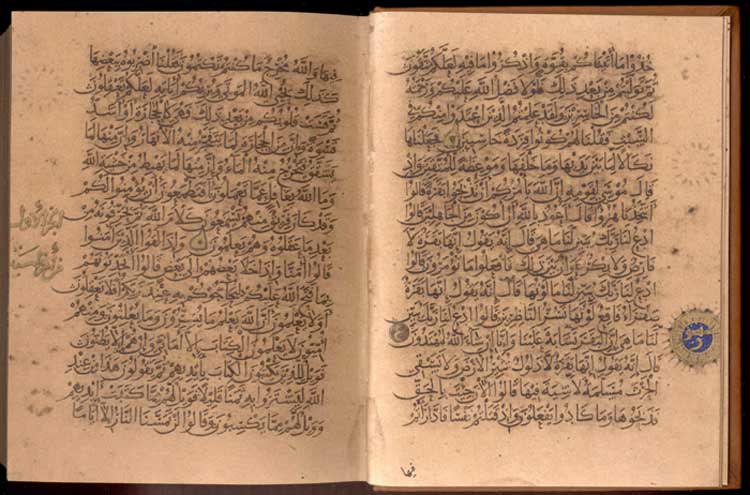 خذوا ما آتيناكم بقوة واذكروا ما فيه لعلكم تتقون
ثم توليتم من بعد ذلك فلولا فضل الله عليكم ورحمته
لكنتم من الخاسرين ولقد علمتم الذين اعتدوا منكم في
السبت فقلنا لهم كونوا قردة خاسئين فجعلناها
نكالا لما بين يديها وما خلفها وموعظة للمتقين وإذ
قال موسى لقومه إن الله يأمركم أن تذبحوا بقرة قالوا
أتتخذنا هزوا قال أعوذ بالله أن أكون من الجاهلين قالوا
ادع لنا ربك يبين لنا ما هي قال إنه يقول إنها بقرة لا
فارض ولا بكر عوان بين ذلك فافعلوا ما تؤمرون قالوا
ادع لنا ربك يبين لنا ما لونها قال إنه يقول إنها بقرة
صفراء فاقع لونها تسر الناظرين قالوا ادع لنا ربك يبين
لنا ما هي إن البقر تشابه علينا وإنا إن شاء الله لمهتدون
قال إنه يقول إنها بقرة لا ذلول تثير الأرض ولا تسقي
الحرث مسلمة لا شية فيها قالوا الآن جئت بالحق
فذبحوها وما كادوا يفعلون وإذ قتلتم نفسا فادارأتم
فيها
فيها والله مخرج ما كنتم تكتمون فقلنا اضربوه ببعضها
كذلك يحيي الله الموتى ويريكم آياته لعلكم تعقلون
ثم قست قلوبكم من بعد ذلك فهي كالحجارة أو أشد
قسوة وإن من الحجارة لما يتفجر منه الأنهار وإن منها لما
يشقق فيخرج منه الماء وإن منها لما يهبط من خشية الله
وما الله بغافل عما تعملون أفتطمعون أن يؤمنوا لكم
وقد كان فريق منهم يسمعون كلام الله ثم يحرفونه من
بعد ما عقلوه وهم يعلمون وإذا لقوا الذين آمنوا
قالوا آمنا وإذا خلا بعضهم إلى بعض قالوا أتحدثونهم
بما فتح الله عليكم ليحاجوكم به عند ربكم أفلا تعقلون
أولا يعلمون أن الله يعلم ما يسرون وما يعلنون ومنهم
أميون لا يعلمون الكتاب إلا أماني وإن هم إلا يظنون
فويل للذين يكتبون الكتاب بأيديهم ثم يقولون هذا من عند
الله ليشتروا به ثمنا قليلا فويل لهم مما كتبت أيديهم
وويل لهم مما يكسبون وقالوا لن تمسنا النار إلا أياما